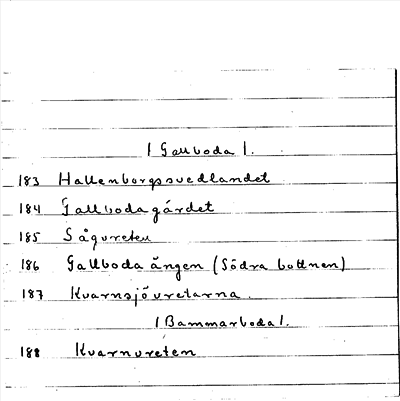 | Gallboda |.
183 Hallenborgssvedlandet
184 Gallboda gärdet
185 Sågvreten
186 Gallboda ängen (Södra bottnen)
187 Kvarnsjövretarna.
| Bammarboda |.
188 Kvarnvreten